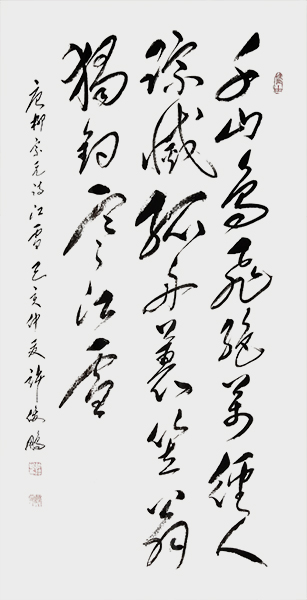 千山鳥飛絕萬徑人
踪滅孤舟蓑笠翁
獨釣寒江雪
唐柳宗元詩江雪己亥仲夏許俊鵬